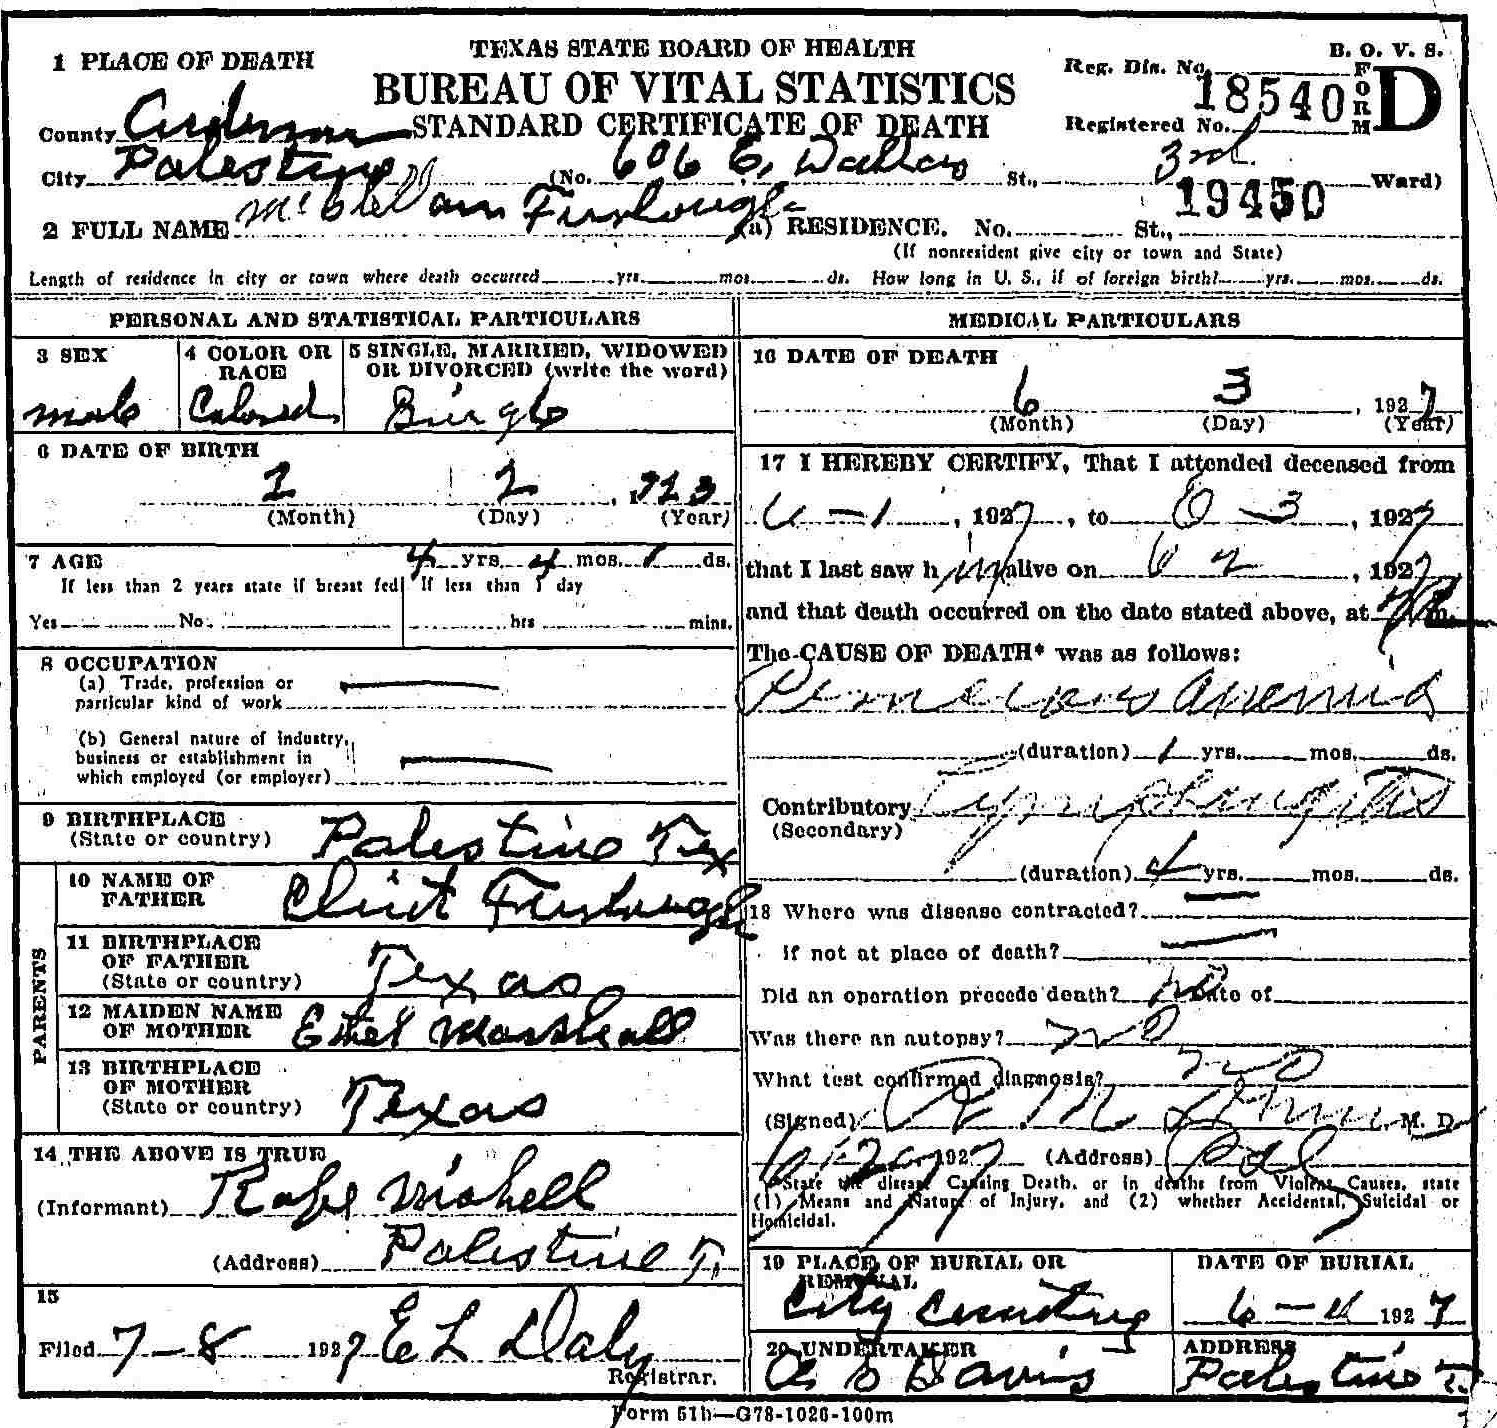 TEXAS STATE BOARD OF HEALTH
BUREAU OF VITAL STATISTICS
STANDARD CERTIFICATE OF DEATH
B. O. V. S.
FORM D
Reg. Dis. No. 18540
Registered No.
1 PLACE OF DEATH
County Anderson
City Palestine (No. 606 E. Dallas St., 3rd Ward)
19450
2 FULL NAME (a) RESIDENCE. No. St.,
(If nonresident give city or town and State)
Length of residence in city or town where death occurred yrs. mos. ds. How long in U. S., if of foreign birth? yrs. mos. ds.
PERSONAL AND STATISTICAL PARTICULARS
3 SEX
male
4 COLOR OR RACE
Colored
5 SINGLE, MARRIED, WIDOWED OR DIVORCED (write the word)
Single
6 DATE OF BIRTH
2 2, 1923
(Month) (Day) (Year)
7 AGE 4 yrs. 4 mos. 1 ds.
If less than 2 years state if breast fed If less than 1 day
Yes No. hrs mins.
8 OCCUPATION
(a) Trade, profession or
particular kind of work
(b) General nature of industry,
business or establishment in
which employed (or employer)
9 BIRTHPLACE
(State or country) Palestine Tex
PARENTS
10 NAME OF
FATHER Clint
11 BIRTHPLACE
OF FATHER
(State or country) Texas
12 MAIDEN NAME
OF MOTHER Ethel Marshall
13 BIRTHPLACE
OF MOTHER
(State or country) Texas
14 THE ABOVE IS TRUE
(Informant)
(Address) Palestine T.
15
Filed 7-8 1927 E L Daly
Registrar.
MEDICAL PARTICULARS
16 DATE OF DEATH
6 3, 1927
(Month) (Day) (Year)
17 I HEREBY CERTIFY, That I attended deceased from
6-1, 1927, to 6-3, 1927
that I last saw h im alive on 6 2, 1927
and that death occurred on the date stated above, at m.
The CAUSE OF DEATH* was as follows:
Pernicious anemia
(duration) 1 yrs. mos. ds.
Contributory
(Secondary)
(duration) yrs. mos. ds.
18 Where was disease contracted?
if not at place of death?
Did an operation precede death? no Date of
Was there an autopsy? no
What test confirmed diagnosis? no
(Signed) M. D.
1927 (Address) Pal
*State the disease Causing Death, or in deaths from Violent Causes, state
(1) Means and Nature of Injury, and (2) whether Accidental, Suicidal or
Homicidal.
19 PLACE OF BURIAL OR
REMOVAL
City Cemetery
DATE OF BURIAL
6-4 1927
20 UNDERTAKER
Davis
ADDRESS
Palestine T.
Form 51h—G78-1026-100m